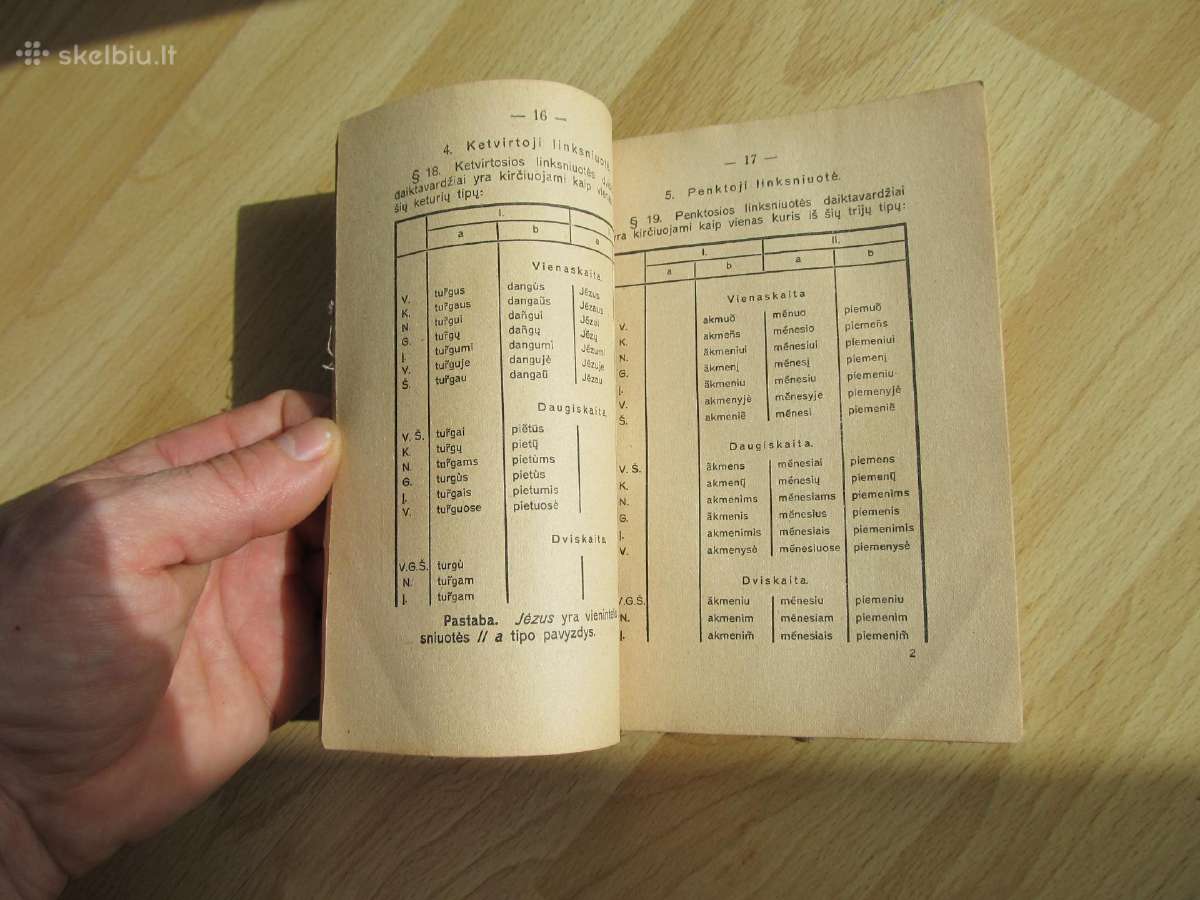 skelbiu.lt
— 16 —
4. Ketvirtoji linksniuotė.
§ 18. Ketvirtosios linksniuotės
daiktavardžiai yra kirčiuojami kaip
šių keturių tipų:
I.
a b a
Vienaskaita.
V. tur̃gus dangùs Jėzus
K. tur̃gaus dangaũs Jėzaus
N. tur̃gui dañgui Jėzui
G. tur̃gų dañgų Jėzų
Į. tur̃gumi dangumi Jėzumi
V. tur̃guje dangujė Jėzuje
Š. tur̃gau dangaũ Jėzau
Daugiskaita.
V. Š. tur̃gai piẽtūs
K. tur̃gų pietų̃
N. tur̃gams pietùms
G. turgùs pietùs
Į. tur̃gais pietumis
V. tur̃guose pietuosė
Dviskaita
V.G.Š. turgù
N. tur̃gam
Į. tur̃gam
Pastaba. Jėzus yra
sniuotės II a tipo pavyzdys.
— 17 —
5. Penktoji linksniuotė.
§ 19. Penktosios linksniuotės daiktavardžiai
yra kirčiuojami kaip vienas kuris iš šių trijų tipų:
I. II.
a b a b
Vienaskaita
V. akmuõ mėnuo piemuõ
K. akmeñs mėnesio piemeñs
N. ãkmeniui mėnesiui piemeniui
G. ãkmenį mėnesį piemenį
Į. ãkmeniu mėnesiu piemeniu
V. akmenyjė mėnesyje piemenyjė
Š. akmeniẽ mėnesi piemeniẽ
Daugiskaita.
V. Š. ãkmens mėnesiai piemens
K. akmenų̃ mėnesių piemenų̃
N. akmenims mėnesiams piemenims
G. ãkmenis mėnesius piemenis
Į. akmenimis mėnesiais piemenimis
V. akmenysė mėnesiuose piemenysė
Dviskaita.
V.G.Š. ãkmeniu mėnesiu piemeniu
N. akmenim mėnesiam piemenim
Į. akmenim̃ mėnesiais piemenim̃
2